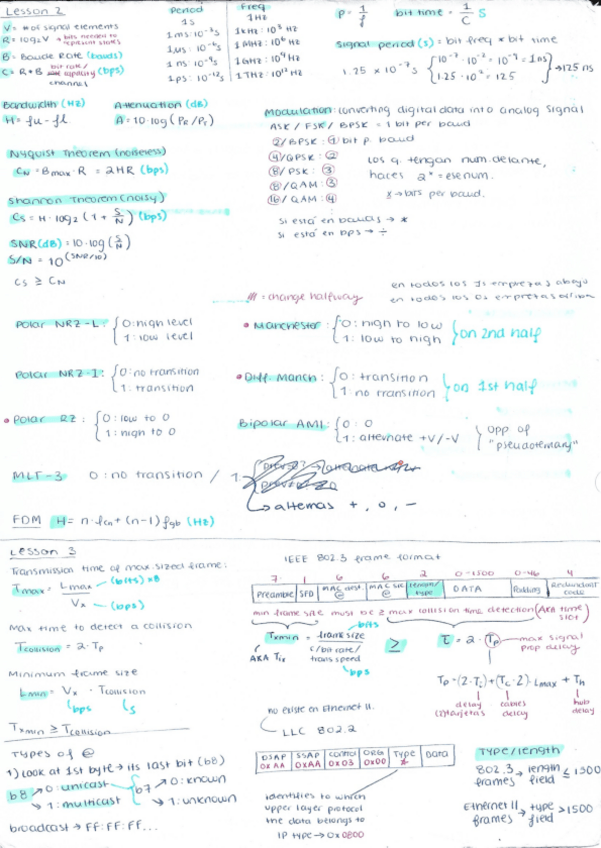 Lesson 2
V = # of signal elements
R = log₂V → bits needed to represent states
B = Baude Rate (bauds)
C = R * B bit rate / capacity (bps)
channel
Period
1s
1ms: 10⁻³s
1µs: 10⁻⁶s
1ns: 10⁻⁹s
1ps: 10⁻¹²s
Freq
1Hz
1kHz: 10³ Hz
1MHz: 10⁶ Hz
1GHz: 10⁹ Hz
1THz: 10¹² Hz
P = 1/f bit time = 1/C s
Signal period (s) = bit freq * bit time
1.25 x 10⁻⁷s { 10⁻⁷·10⁻² = 10⁻⁹ = 1ns
1.25·10² = 125 } → 125 ns
Bandwidth (Hz)
H = fu - fl
Attenuation (dB)
Nyquist Theorem (noiseless)
C_N = Bmax · R = 2HR (bps)
Shannon Theorem (noisy)
C_S = H · log₂ (1 + S/N) (bps)
SNR (dB) = 10·log (S/N)
S/N = 10^(SNR/10)
C_S ≥ C_N
Modulation: converting digital data into analog signal
ASK / FSK / BPSK = 1 bit per baud
2/BPSK: 1 bit p. baud
4/QPSK: 2
8/PSK: 3
8/QAM: 3
16/QAM: 4
Los q. tengan num. delante,
haces 2ˣ = ese num.
x → bits per baud.
si está en bauds → *
si está en bps → ÷
/// = change halfway
en todos los 1s empezas abajo
en todos los 0s empezas arriba
Polar NRZ-L: { 0: high level
1: low level
• Manchester: { 0: high to low
1: low to high } on 2nd half
Polar NRZ-I: { 0: no transition
1: transition
• Diff. Manch: { 0: transition
1: no transition } on 1st half
• Polar RZ: { 0: low to 0
1: high to 0
Bipolar AMI: { 0: 0
1: alternate +V/-V } opp of "pseudoternary"
MLT-3 0: no transition / 1:
↳ alternas +, 0, -
FDM H = n·fcn + (n-1) fgb (Hz)
Lesson 3
Transmission time of max. sized frame:
Tmax = Lmax → (bits) *8 / Vx → (bps)
Max time to detect a collision
Tcollision = 2·Tp
Minimum frame size
Lmin = Vx · Tcollision
bps s
Txmin ≥ Tcollision
Types of @
1) Look at 1st byte → its last bit (b8)
b8 → 0: unicast
→ 1: multicast
b7 → 0: known
→ 1: unknown
broadcast → FF:FF:FF...
IEEE 802.3 frame format
7 1 6 6 2 0-1500 0-46 4
Preamble | SFD | MAC dest. @ | MAC src @ | length/type | DATA | Padding | Redundant code
min frame size must be ≥ max collision time detection (AKA time slot)
Txmin = frame size / bit rate / trans speed
bits
bps
≥ τ = 2·Tp → max signal prop delay
Tp = (2·Ti) + (Tc·2)·Lmax + Th
delay tarjetas
cables delay
hub delay
no existe en Ethernet II.
LLC 802.2
DSAP 0xAA | SSAP 0xAA | control 0x03 | ORG 0x00 | Type * | Data
identifies to which
upper layer protocol
the data belongs to
IP type → 0x0800
Type/length
802.3 frames → length field ≤ 1500
Ethernet II frames → type field > 1500